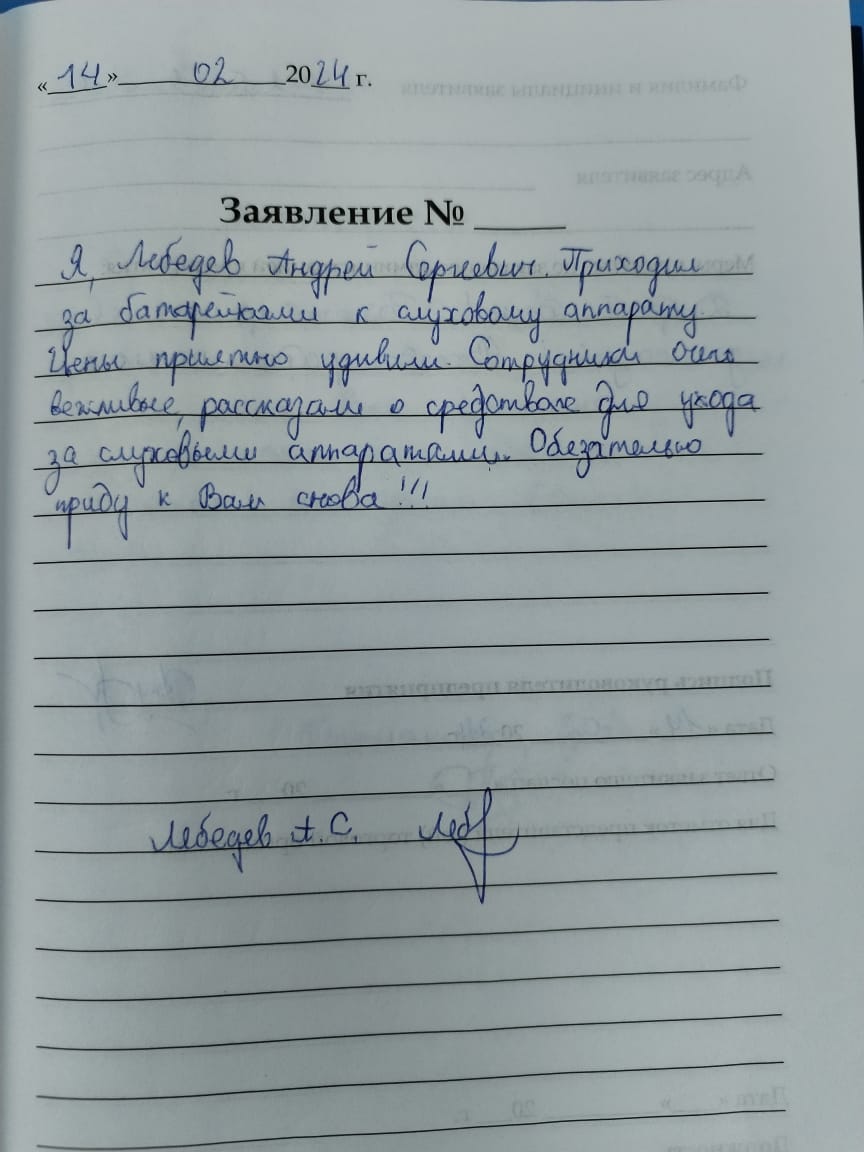 «14» 02 2024 г.
Заявление № ______
Я, Лебедев Андрей Сергеевич. Приходил
за батарейками к слуховому аппарату.
Цены приятно удивили. Сотрудники очень
вежливые, рассказали о средствах для ухода
за слуховыми аппаратами. Обезательно
приду к Вам снова!!!
Лебедев А. С.